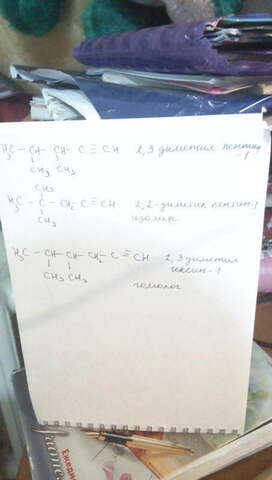 H₃C - CH - CH - C ≡ CH 2,3 диметил пентин
-1
CH₃ CH₃
CH₃
H₃C - C - CH₂ C ≡ CH 2,2-диметил пентин-1
CH₃ изомер
H₃C - CH - CH - CH₂ - C ≡ CH 2,3 диметил
CH₃ CH₃ гексин-1
гомолог